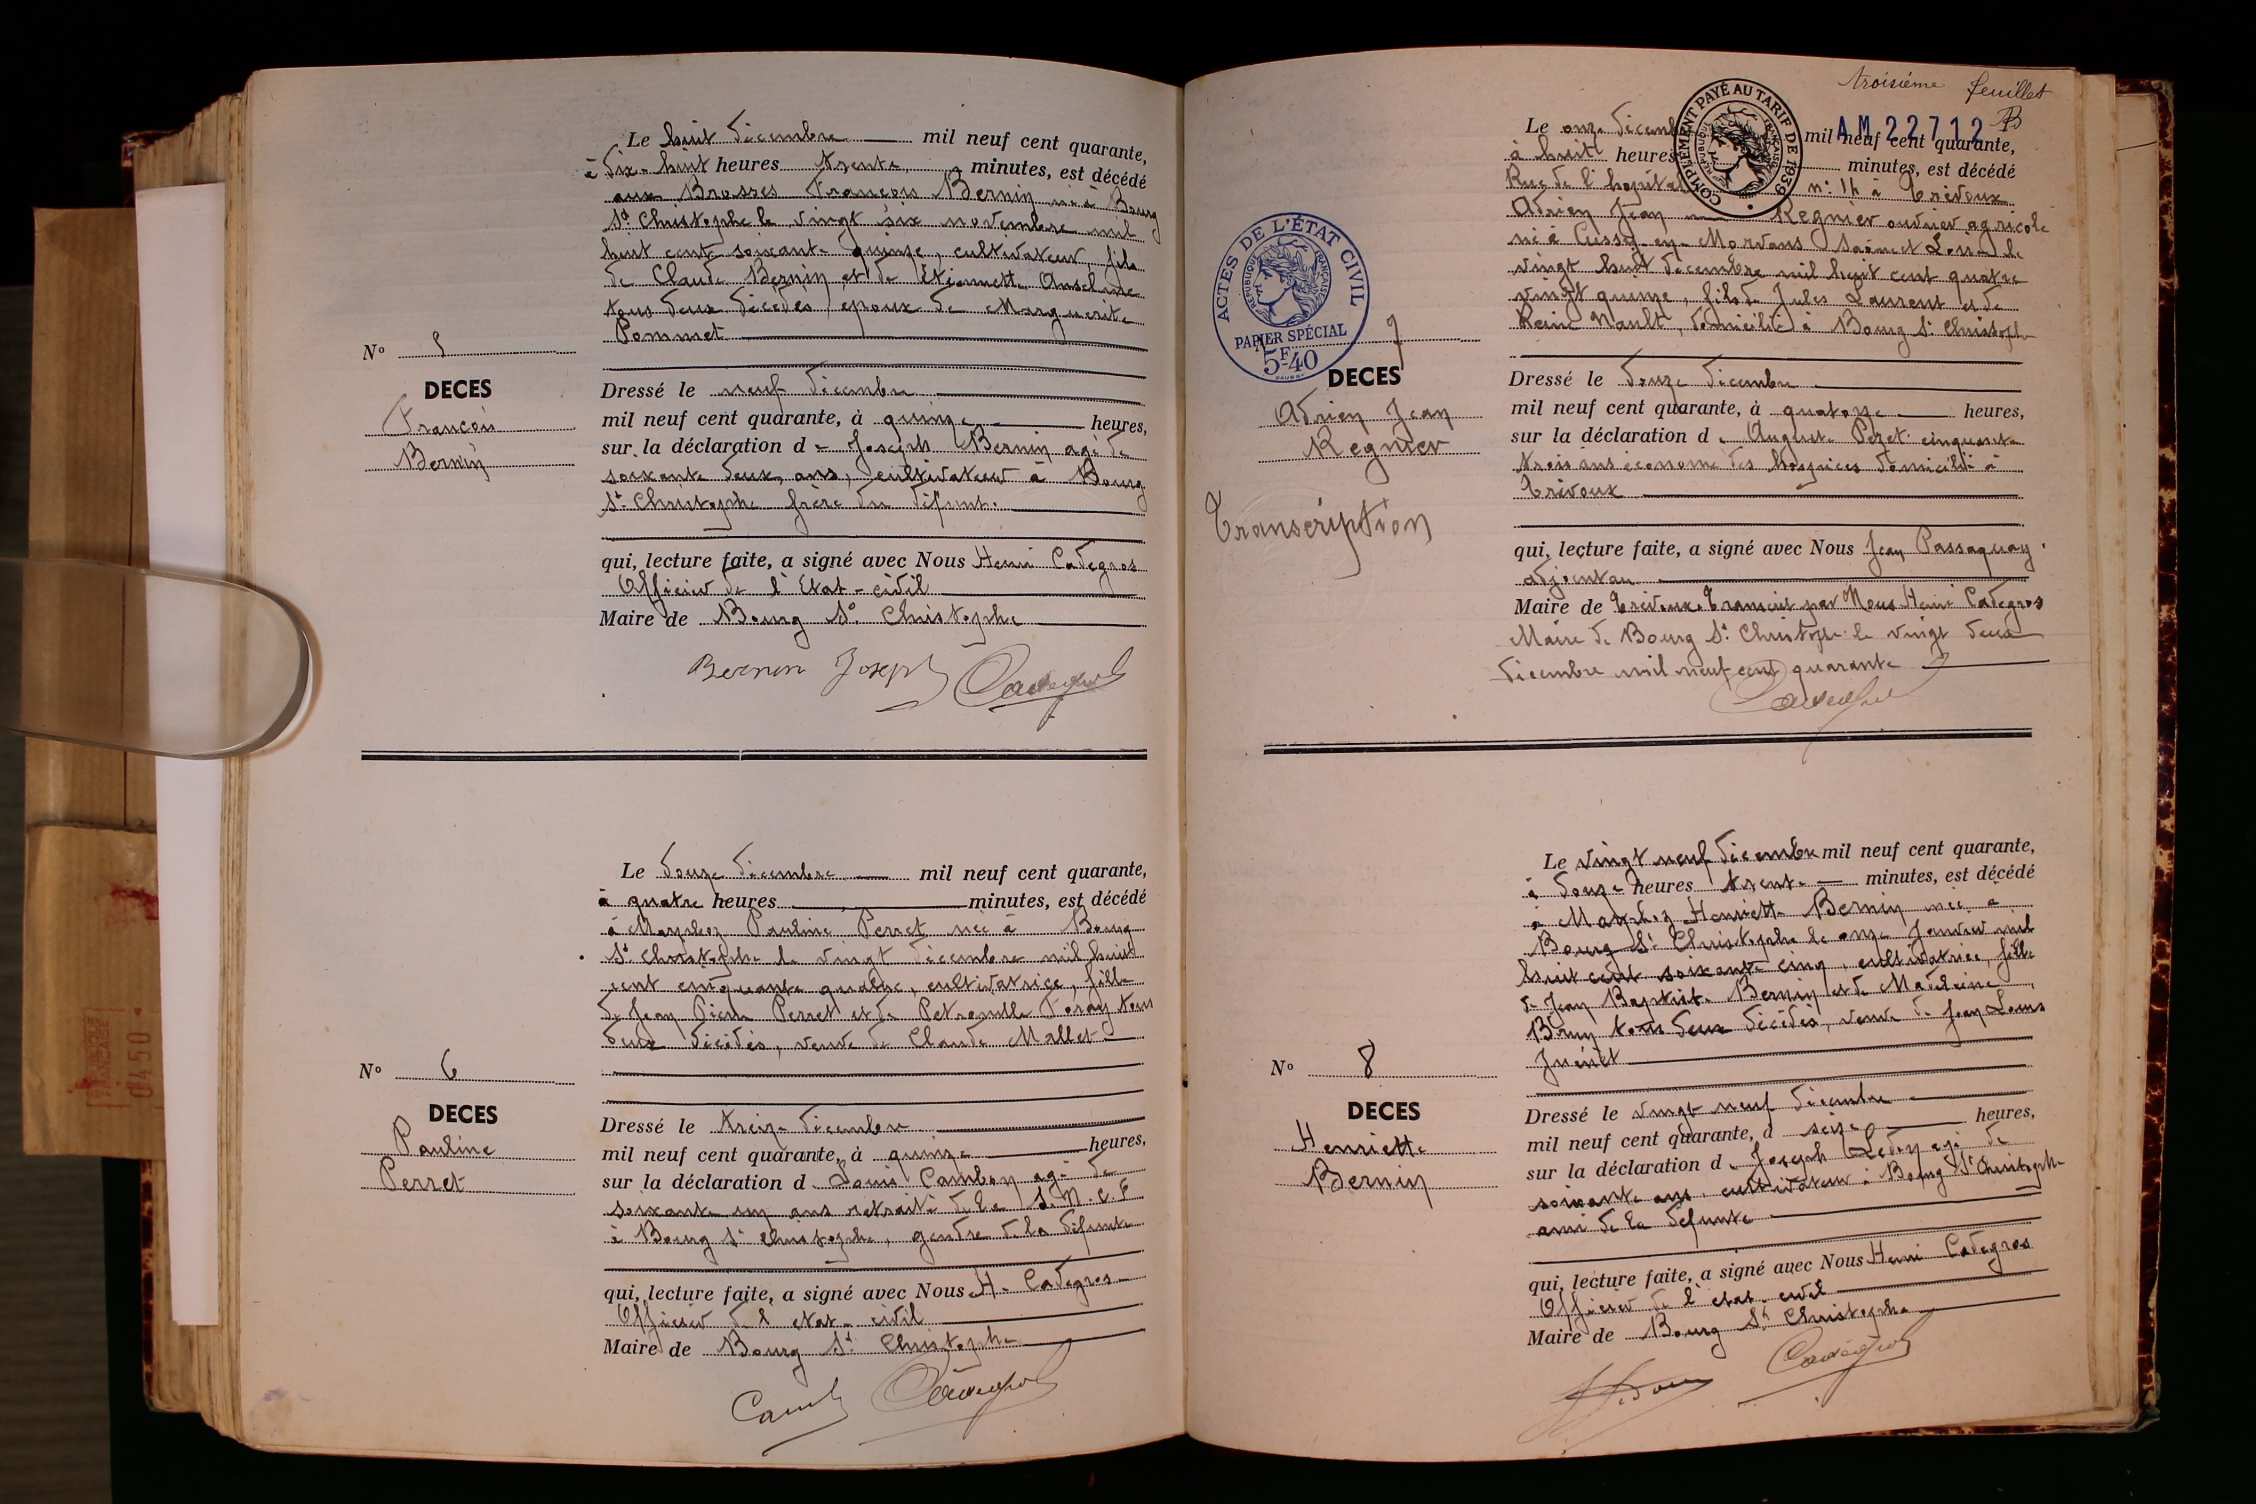 Le huit décembre mil neuf cent quarante,
à dix-huit heures trente minutes, est décédé
aux Brosses François Bernin né à Bourg
St Christophe le vingt six novembre mil
huit cent soixante quinze, cultivateur, fils
de Claude Bernin et de Etiennette Anselme
tous deux décédés, époux de Marguerite
Pommet
No 5
DECES
François
Bernin
Dressé le neuf décembre
mil neuf cent quarante, à quinze heures,
sur la déclaration de Joseph Bernin agé de
soixante deux ans, cultivateur à Bourg
St Christophe frère du défunt.
qui, lecture faite, a signé avec Nous Henri Cadegros
Officier de l'Etat-civil
Maire de Bourg St Christophe
Bernin Joseph Cadegros
Le douze décembre mil neuf cent quarante,
à quatre heures minutes, est décédé
à Pauline Perret née à Bourg
St Christophe le vingt décembre mil huit
cent cinquante quatre, cultivatrice, fille
de Jean Pierre Perret et de Petronille Foray tous
deux décédés, veuve de Claude Mallet
No 6
DECES
Pauline
Perret
Dressé le treize décembre
mil neuf cent quarante, à quinze heures,
sur la déclaration de Louis Cambon agé de
soixante un ans retraité de la S.N.C.F
à Bourg St Christophe, gendre de la défunte
qui, lecture faite, a signé avec Nous H. Cadegros
Officier de l'etat-civil
Maire de Bourg St Christophe
Cadegros
troisième feuillet
AM 22712
COMPLÉMENT PAYÉ AU TARIF DE 1939
RÉPUBLIQUE FRANÇAISE
Le onze décembre mil neuf cent quarante,
à huit heures minutes, est décédé
Rue de l'hopital no 14 à Trévoux
Adrien Jean Regnier ouvrier agricole
né à Cussy-en-Morvans Saône et Loire le
vingt huit décembre mil huit cent quatre
vingt quinze, fils de Jules Laurent et de
Reine Nault, domicilié à Bourg St Christophe
ACTES DE L'ÉTAT CIVIL
RÉPUBLIQUE FRANÇAISE
PAPIER SPÉCIAL
5F40
7
DECES
Adrien Jean
Regnier
Transcription
Dressé le douze décembre
mil neuf cent quarante, à quatorze heures,
sur la déclaration de Auguste Pezet cinquante
trois ans économe des hospices domicilié à
Trévoux
qui, lecture faite, a signé avec Nous Jean Passaquay
adjoint au
Maire de Trévoux. Transcrit par Nous Henri Cadegros
Maire de Bourg St Christophe le vingt deux
décembre mil neuf cent quarante
Cadegros
Le vingt neuf décembre mil neuf cent quarante,
à douze heures trente minutes, est décédé
à Henriette Bernin née à
Bourg St Christophe le onze Janvier mil
huit cent soixante cinq, cultivatrice, fille
de Jean Baptiste Bernin et de Madeleine
tous deux décédés, veuve de Jean Louis
No 8
DECES
Henriette
Bernin
Dressé le vingt neuf décembre
mil neuf cent quarante, à seize heures,
sur la déclaration de Joseph agé de
soixante ans, cultivateur à Bourg St Christophe
ami de la défunte
qui, lecture faite, a signé avec Nous Henri Cadegros
Officier de l'etat-civil
Maire de Bourg St Christophe
Cadegros
0450